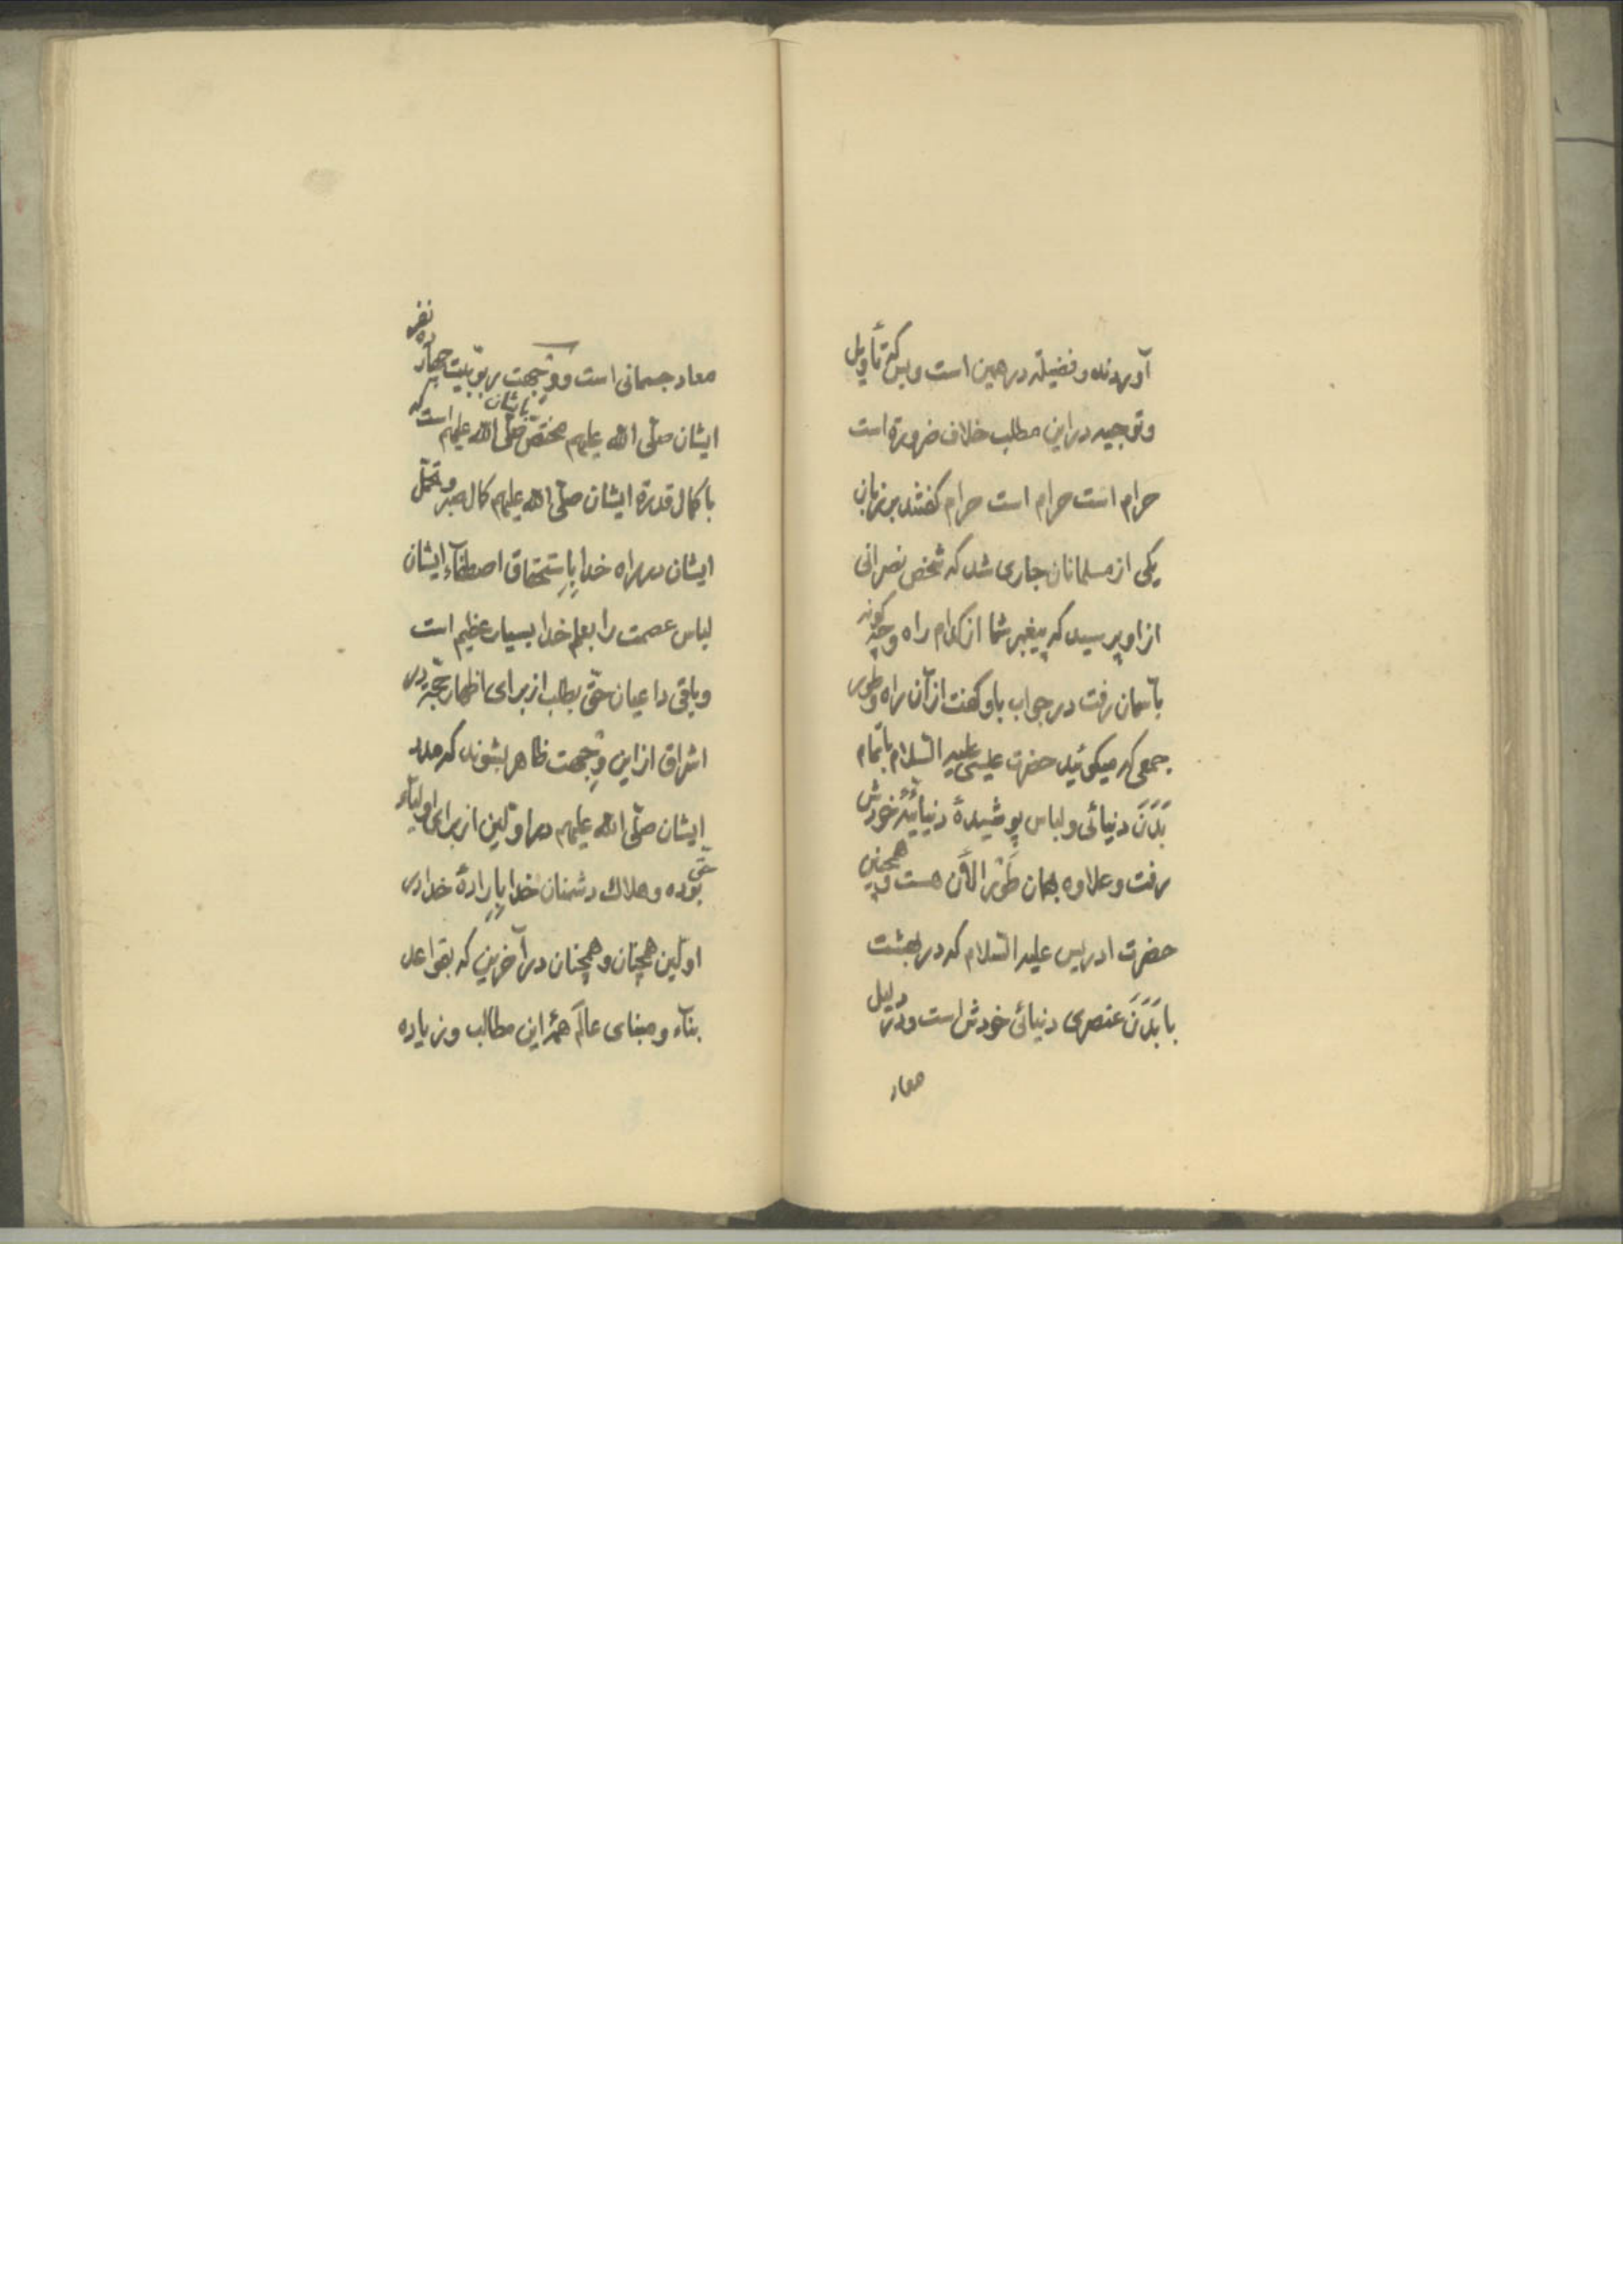 آوردند و فضیلة در همین است و بس که تأویل
و توجیه در این مطلب خلاف ضرورة است
حرام است حرام است حرام گفتند بر زبان
یکی از مسلمانان جاری شد که شخص نصرانی
از او پرسید که پیغمبر شما از کدام راه و چه گونه
بآسمان رفت در جواب باو گفت از آن راه و طور
جمعی که میگوئید حضرت عیسی علیه السلام با تمام
بَدَنَ دنیائی و لباس پوشیدهٔ دنیائیهٔ خودش
رفت و علاوه بهمان طَوْر الآن هست و همچنین
حضرت ادریس علیه السلام که در بهشت
با بَدَنَ عنصری دنیائی خودش است و در دلیل
معاد
معاد جسمانی است و وجهت ربوبیت چهارده نفر
ایشان صلّی الله علیهم مختصّ بایشان صلّی الله علیهم است که
با کمال قدرة ایشان صلّی الله علیهم کمال صبر و تحمّل
ایشان در راه خدا باِستحقاق اصطفآء ایشان
لباس عصمت را بعلم خدا بسیار عظیم است
و باقی داعیان حقّ بطلب از برای اظهار تحیّر در
اشراق از این وجهت ظاهر بشوند که مدد
ایشان صلّی الله علیهم در اوّلین از برای اولیآء
حقّ بوده و هلاك دشمنان خدا بِاِرادهٔ خدا در
اوّلین همچنان و همچنان در آخرین که بقواعد
بنآء و مبنای عالَم همهٔ این مطالب و زیاده